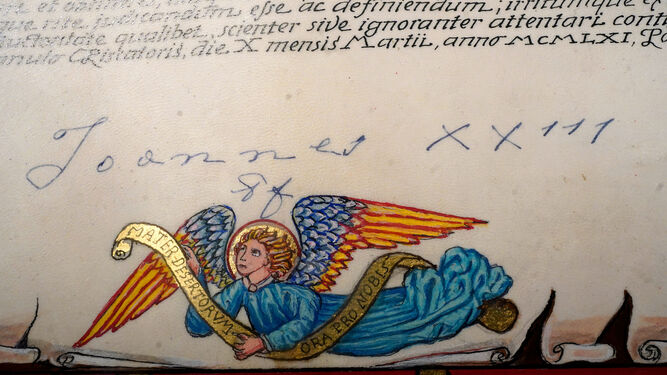 et
que rite judicandum esse ac definiendum; irritumque e
uctoritate qualibet, scienter sive ignoranter attentari conti
nulo Piscatoris, die X mensis Martii, anno MCMLXI, Po
Joannes XXIII
MATER DESERTORVM ORA PRO NOBIS